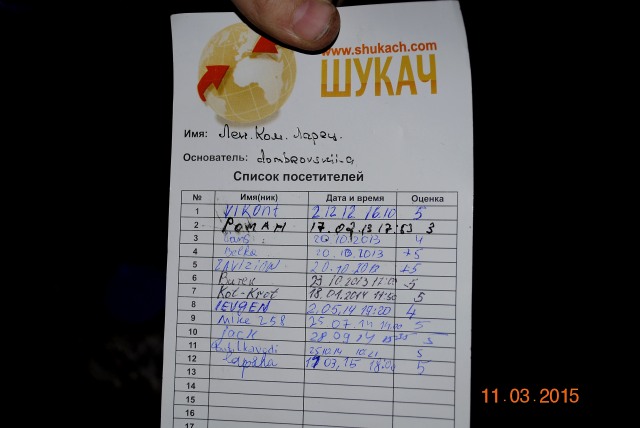 www.shukach.com
ШУКАЧ
Имя: Лен. Ком. Ларец.
Основатель: dombrovskii-a
Список посетителей
№ Имя(ник) Дата и время Оценка
1 VIKONT 2 12 12 16.10 5
2 РОМАН 17.02.13 17:53 3
3 20.10.2013 4
4 Belka 20.10.2013 +5
5 20.10.2013 +5
6 10.2013 5
7 Kot-Krot 18.01.2014 5
8 IEVGEN 2.05.14 19:20 4
9 Mike 258 25.07.14 5
10 Jack 28 09 14 5
11 25 10 14 5
12 03.15 18:00 5
13
14
15
16
17
11.03.2015